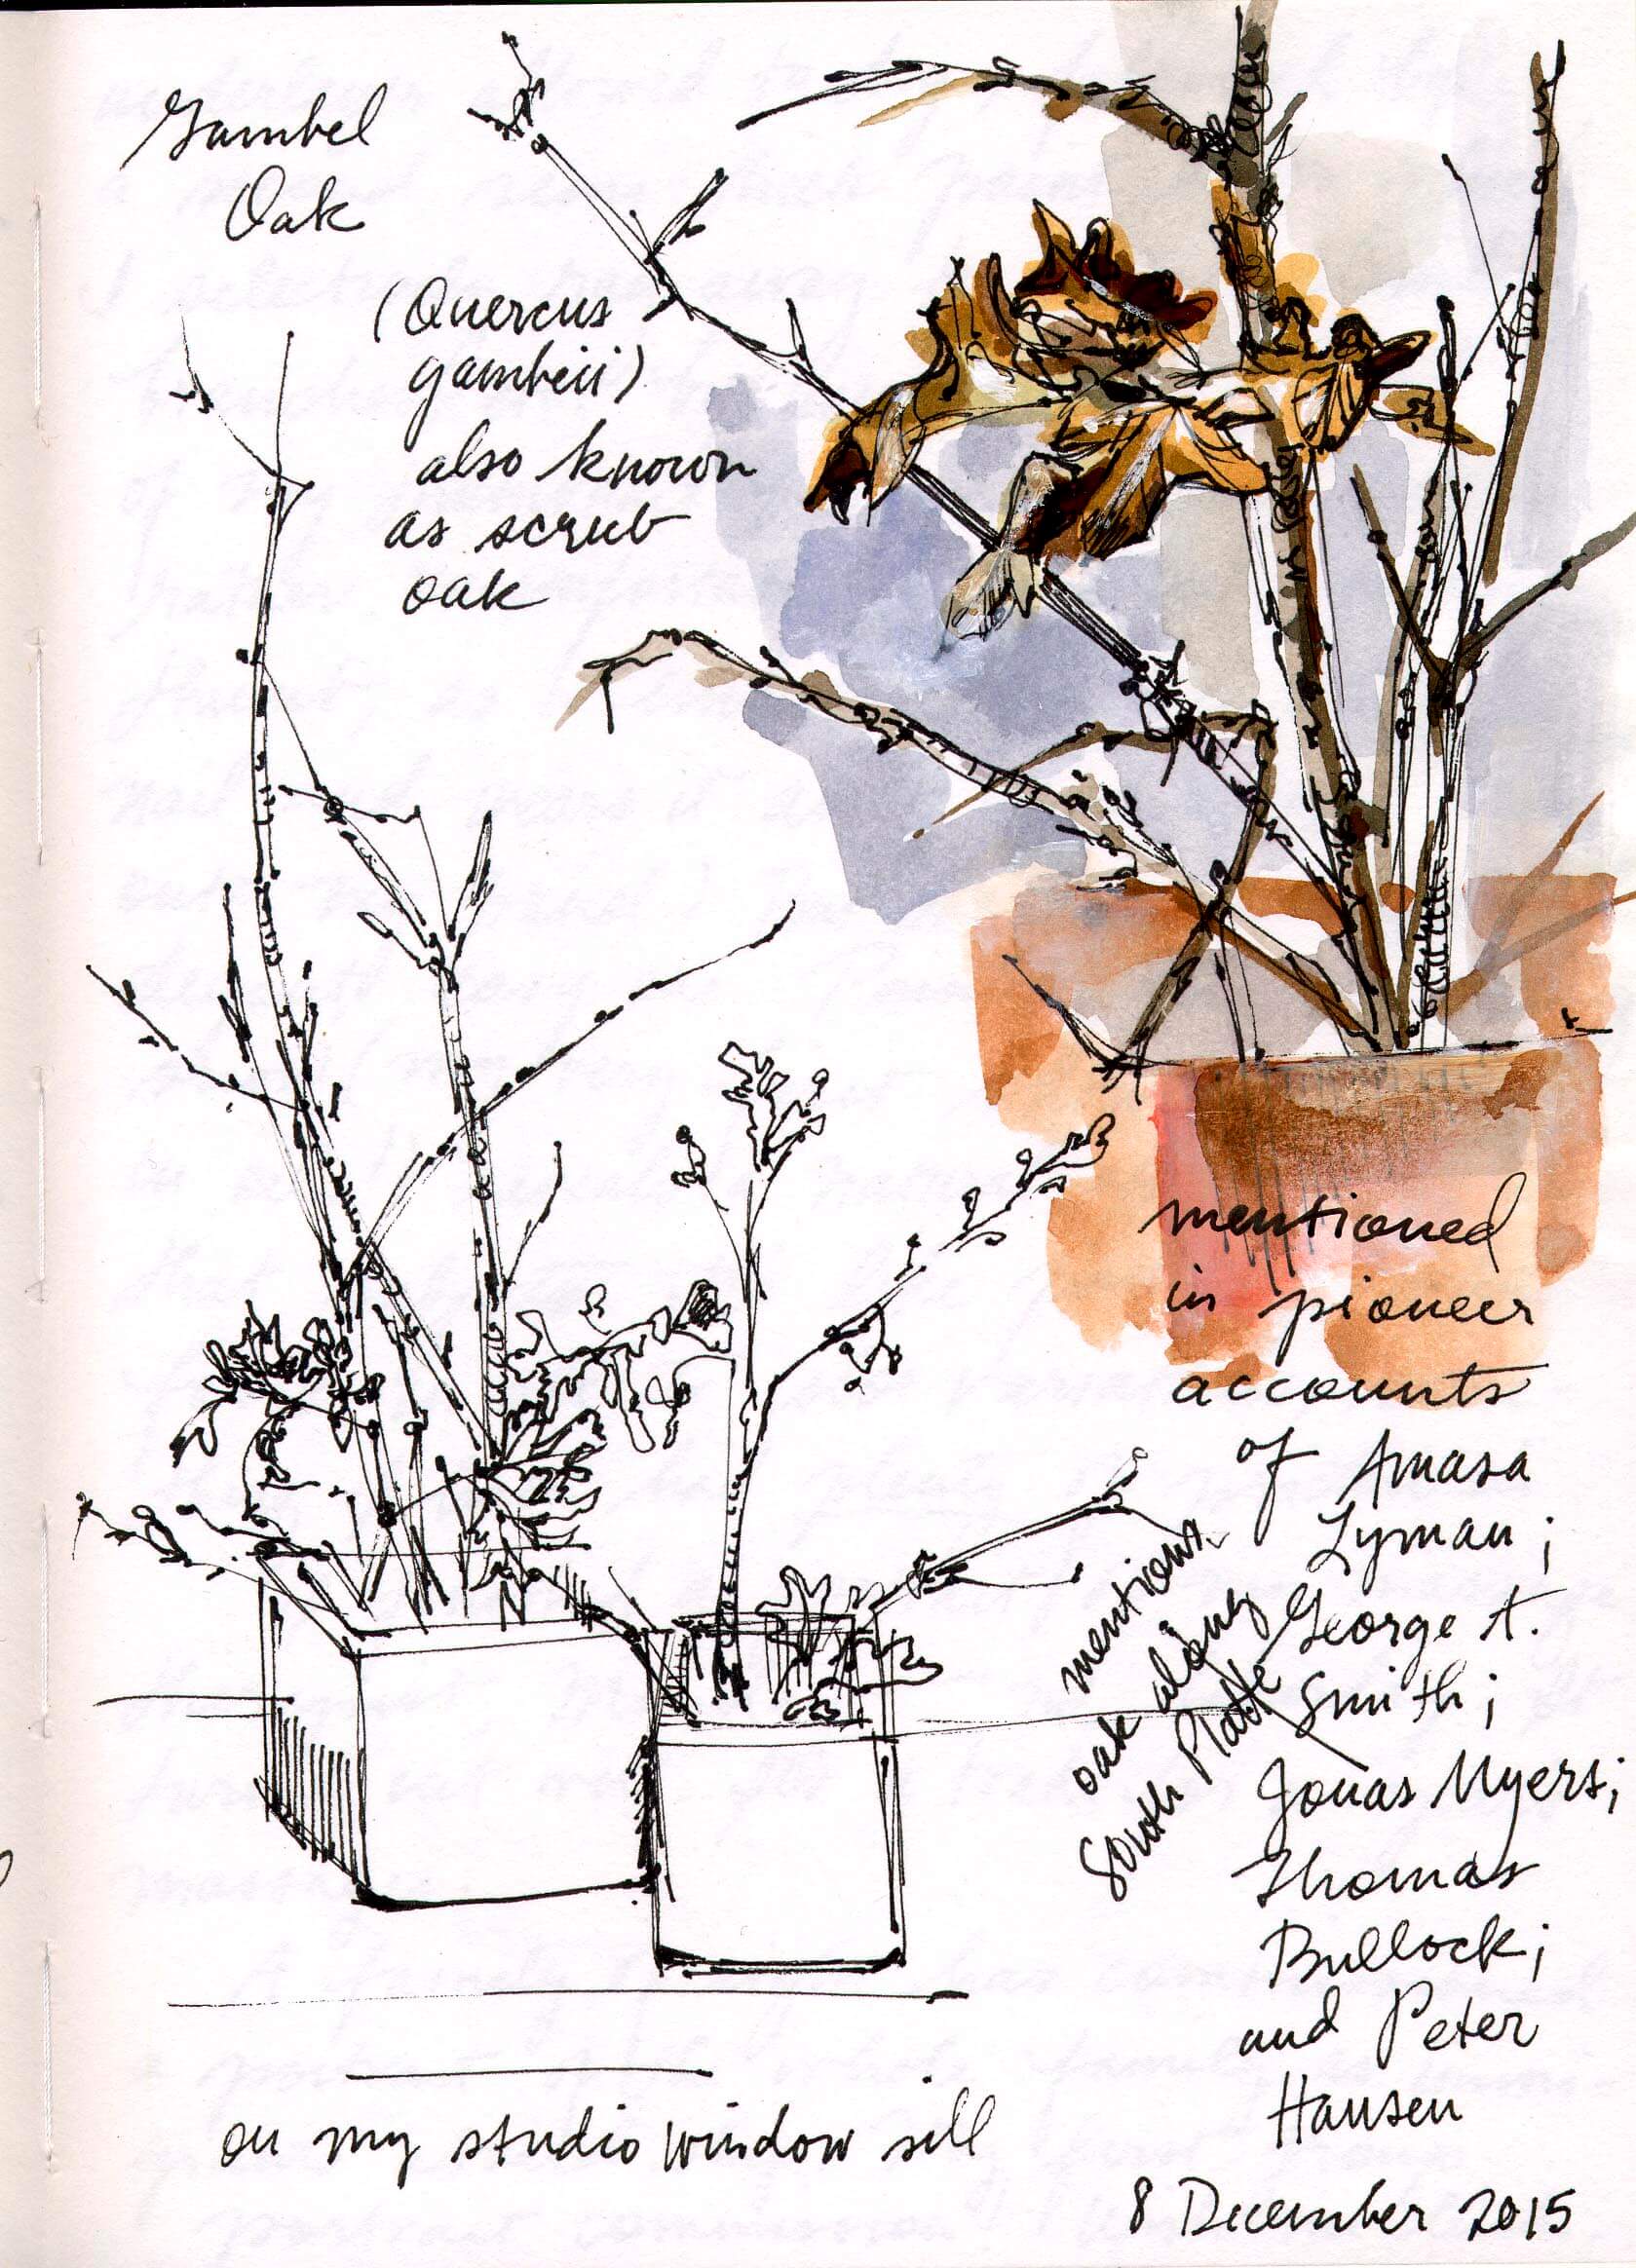 Gambel
Oak
(Quercus
gambeii)
also known
as scrub
oak
mentioned
in pioneer
accounts
of Amasa
Lyman;
George A.
Smith;
Jonas Myers;
Thomas
Bullock;
and Peter
Hansen
mentions
oak along
South Platte
on my studio window sill
8 December 2015